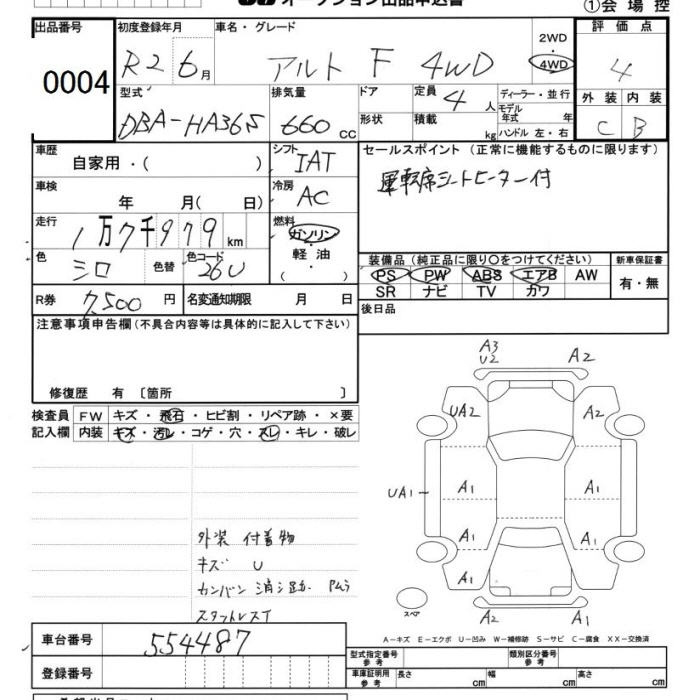 オークション出品申込書
①会場控
出品番号
0004
初度登録年月
R2 6月
車名・グレード
アルト F 4WD
2WD
・
4WD
評価点
4
外装 内装
C B
型式
DBA-HA36S
排気量
660 CC
ドア
形状
定員
4 人
積載 kg
ディーラー・並行
モデル年式 年
ハンドル 左・右
車歴
自家用・( )
シフト
IAT
セールスポイント (正常に機能するものに限ります)
運転席シートヒーター付
車検
年 月( 日)
冷房
AC
走行
1万7千979km
燃料
ガソリン
・
軽油
( ・ )
色
シロ
色替
色コード
26U
装備品 (純正品に限り〇をつけてください)
PS PW ABS エアB AW
SR ナビ TV カワ
新車保証書
有・無
R券
7,500 円
名変通知期限 月 日
後日品
注意事項申告欄 (不具合内容等は具体的に記入して下さい)
修復歴 有 〔箇所 〕
検査員
記入欄
FW キズ・飛石・ヒビ割・リペア跡・×要
内装 キズ・汚レ・コゲ・穴・スレ・キレ・破レ
外装 付着物
キズ U
カンバン消シ跡 ムラ
スタットレスT
A3
U2
A2
UA2
A2
UA1
A1
A1
A1
A1
A1
スペア
A2
A1
A-キズ E-エクボ U-凹み W-補修跡 S-サビ C-腐食 XX-交換済
車台番号
554487
登録番号
型式指定番号
参考
類別区分番号
参考
車庫証明用
参考
長さ cm
幅 cm
高さ cm